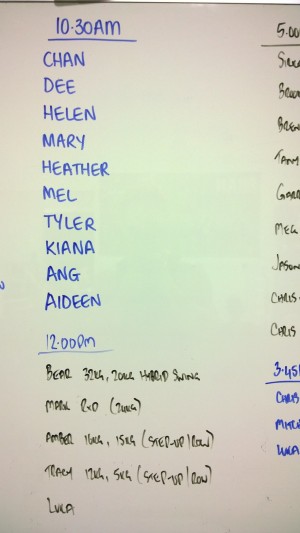 10.30AM
CHAN
DEE
HELEN
MARY
HEATHER
MEL
TYLER
KIANA
ANG
AIDEEN
12.00pm
BEAR 32KG, 20KG HYBRID SWING
MARK RXD (24KG)
AMBER 16KG, 15KG (STEP-UP/ROW)
TRACY 12KG, 5KG (STEP-UP/ROW)
LUKA
5.00
MEG
JASON
CHRIS
CHRIS
3.45
CHRIS
LUKA